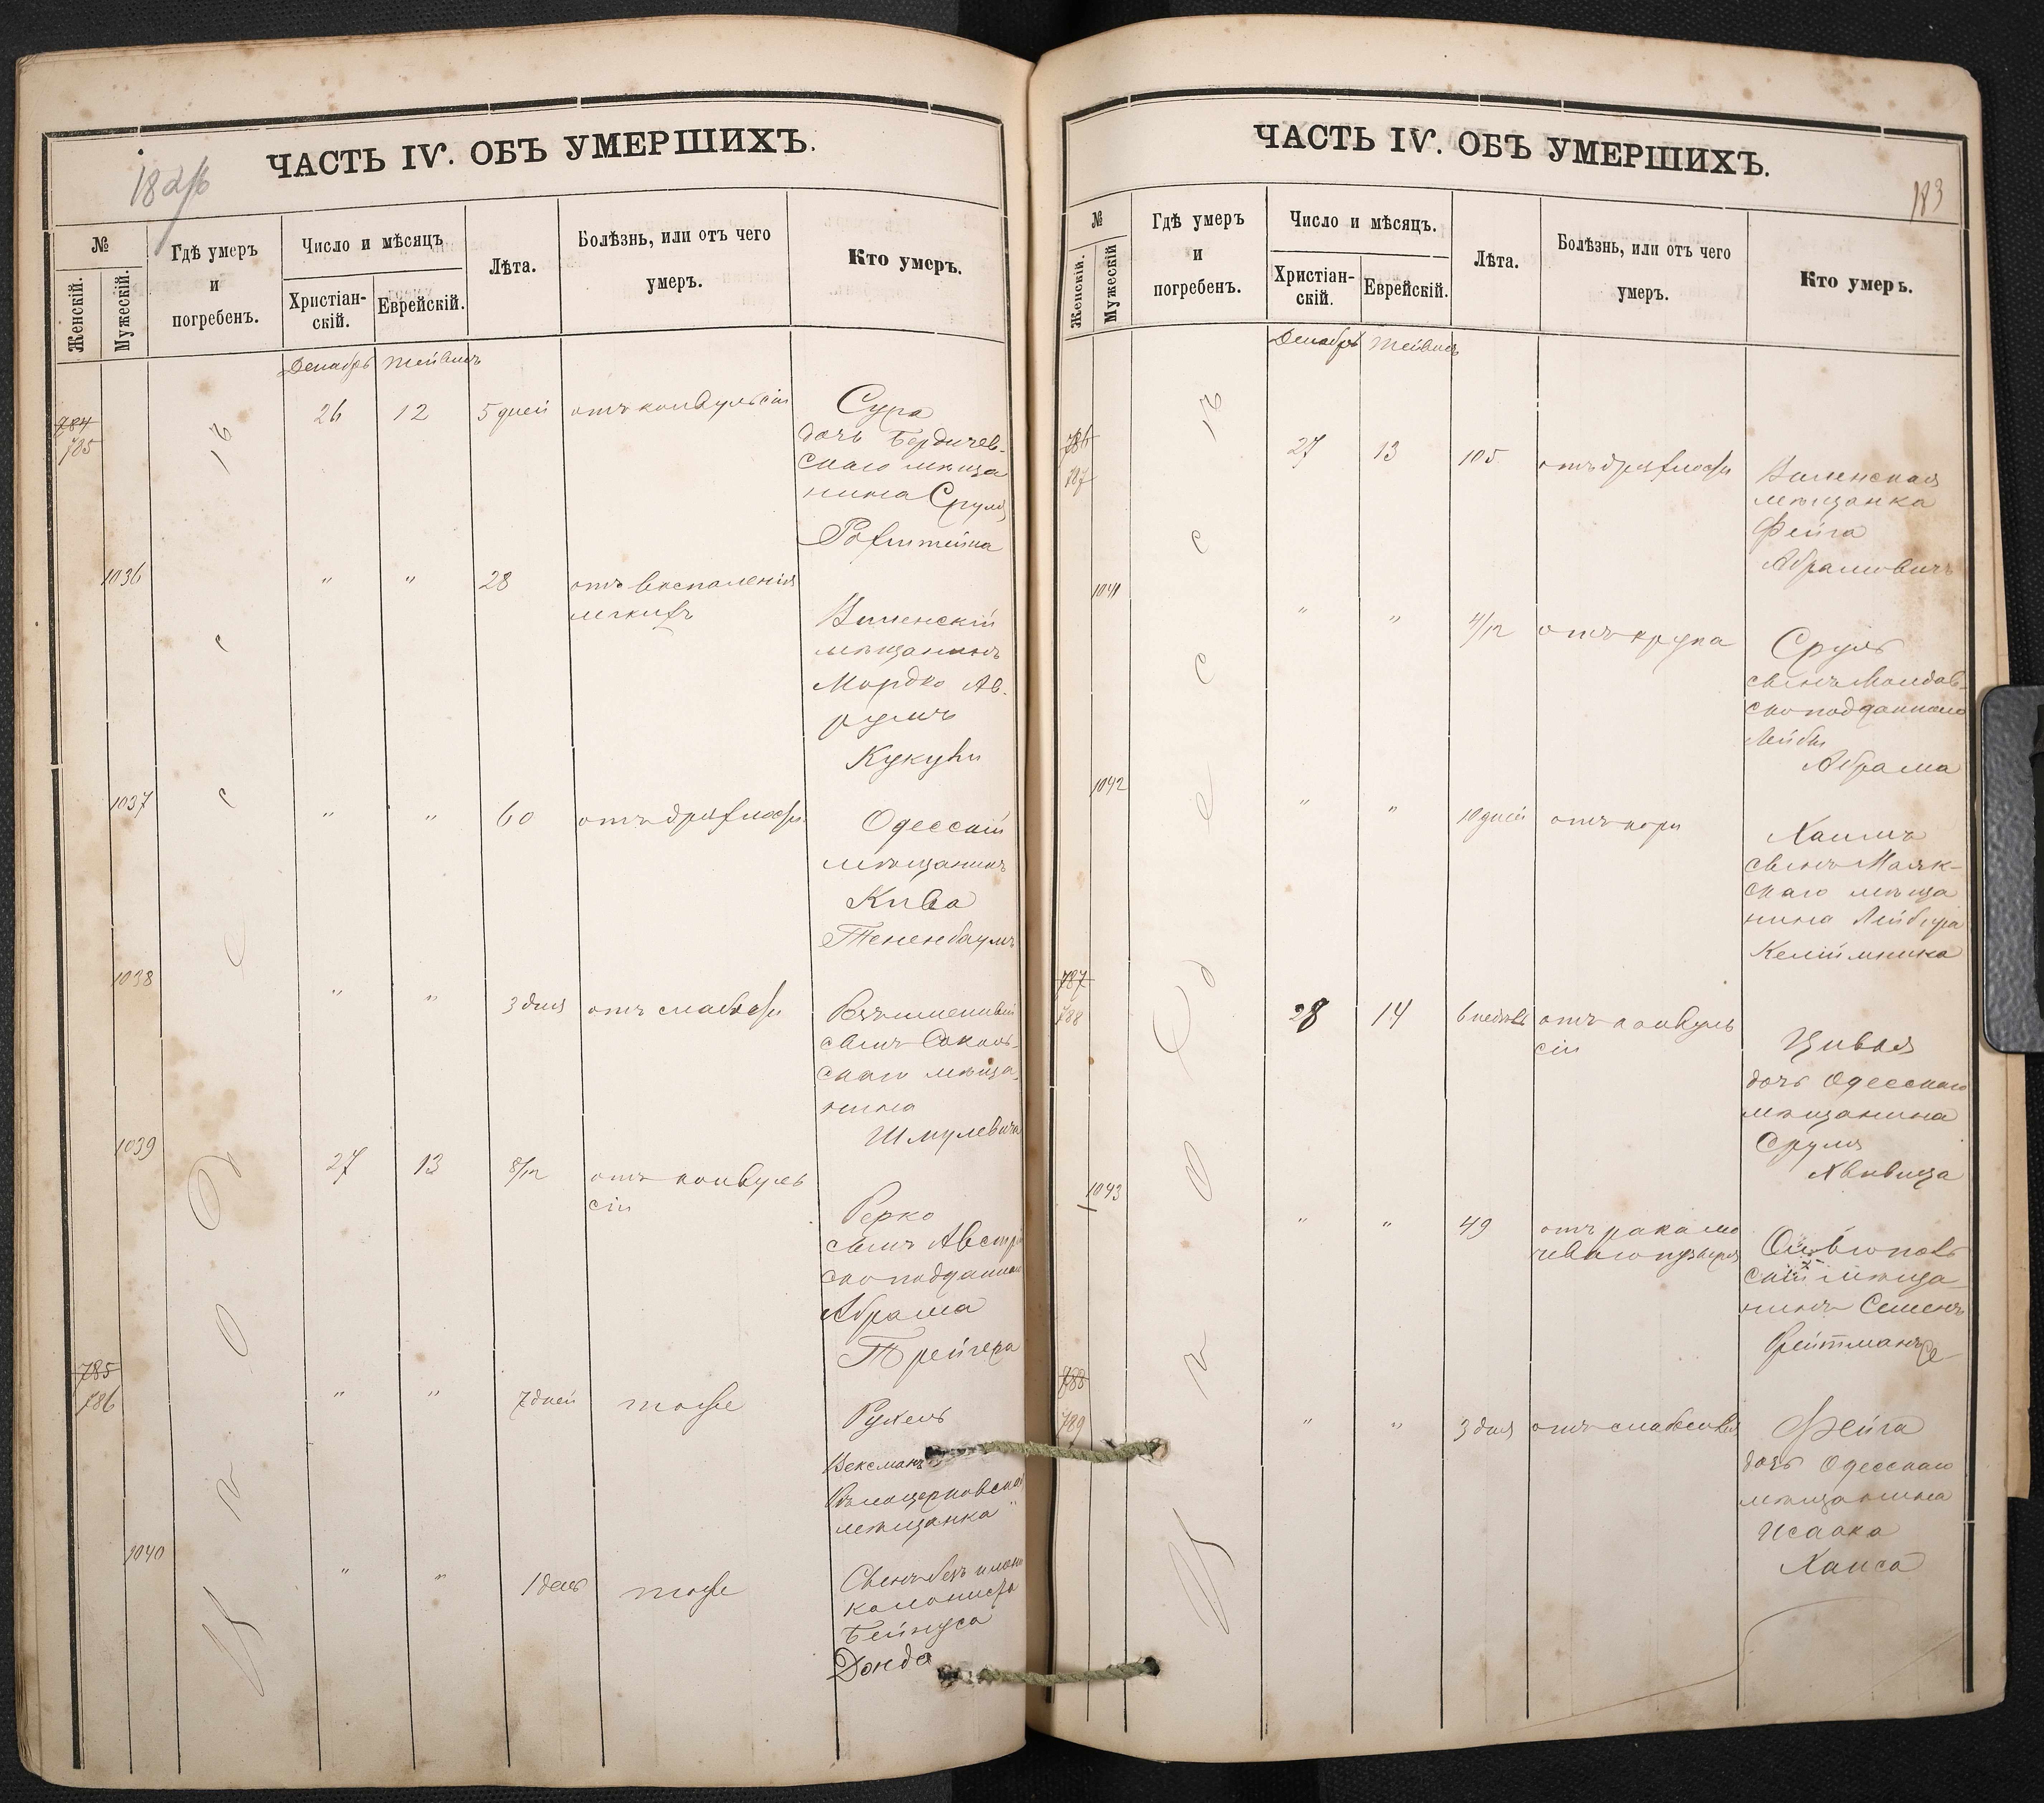 ЧАСТЬ IV. ОБЪ УМЕРШИХЪ.
№
Женскій.
Мужескій.
Гдѣ умеръ
и
погребенъ.
Число и мѣсяцъ
Христіан-
скій.
Еврейскій.
Лѣта.
Болѣзнь, или отъ чего
умеръ.
Кто умеръ.
Декабрь Тейвисъ
784
785
26 12 5 дней отъ конвульсіи
Сура
дочь Бердичев-
скаго мѣща
нина Сруля
Рофштейна
1036
" " 28 отъ воспаленія
легкихъ
Виленскій
мѣщанинъ
Мордко Ав-
румъ
1037
" " 60 отъ дряхлости
Одесскій
мѣщанинъ
Кива
Тененбаумъ
1038
" " 3 дня отъ слабости
сынъ
скаго мѣща-
нина
Шмулевича
1039
27 13 8/12 отъ конвуль
сіи
Берко
сынъ Австрі
скоподданнаго
Абрама
Трейгера
785
786
" " 7 дней тоже
Рухель
Вексманъ
Бѣлоцерковская
мѣщанка
1040
" " 1 день тоже
Сынъ безъ имени
колониста
Бейнуса
Донда
Одессѣ
ЧАСТЬ IV. ОБЪ УМЕРШИХЪ.
183
№
Женскій.
Мужескій
Гдѣ умеръ
и
погребенъ.
Число и мѣсяцъ.
Христіан-
скій.
Еврейскій.
Лѣта.
Болѣзнь, или отъ чего
умеръ.
Кто умеръ.
Декабрь Тейвисъ
786
787
27 13 105 отъ дряхлости
Виленская
мѣщанка
Фейга
Абрамовичъ
1041
" " 4/12 отъ крупа
Сруль
сынъ Молдав-
скоподданнаго
Лейбы
Абрама
1042
" " 10 дней отъ кори
Хаимъ
сынъ Маяк-
скаго мѣща
нина Лейзера
Келиймника
787
788
28 14 6 недѣль отъ конвуль
сіи
Цивья
дочь Одесскаго
мѣщанина
Сруля
1043
" " 49 отъ рака мо
чеваго пузыря
скій мѣща
нинъ Семенъ
Фейтманъ
788
789
" " 3 дня отъ слабости
Фейга
дочь Одесскаго
мѣщанина
Исаака
Хаиса
Одессѣ